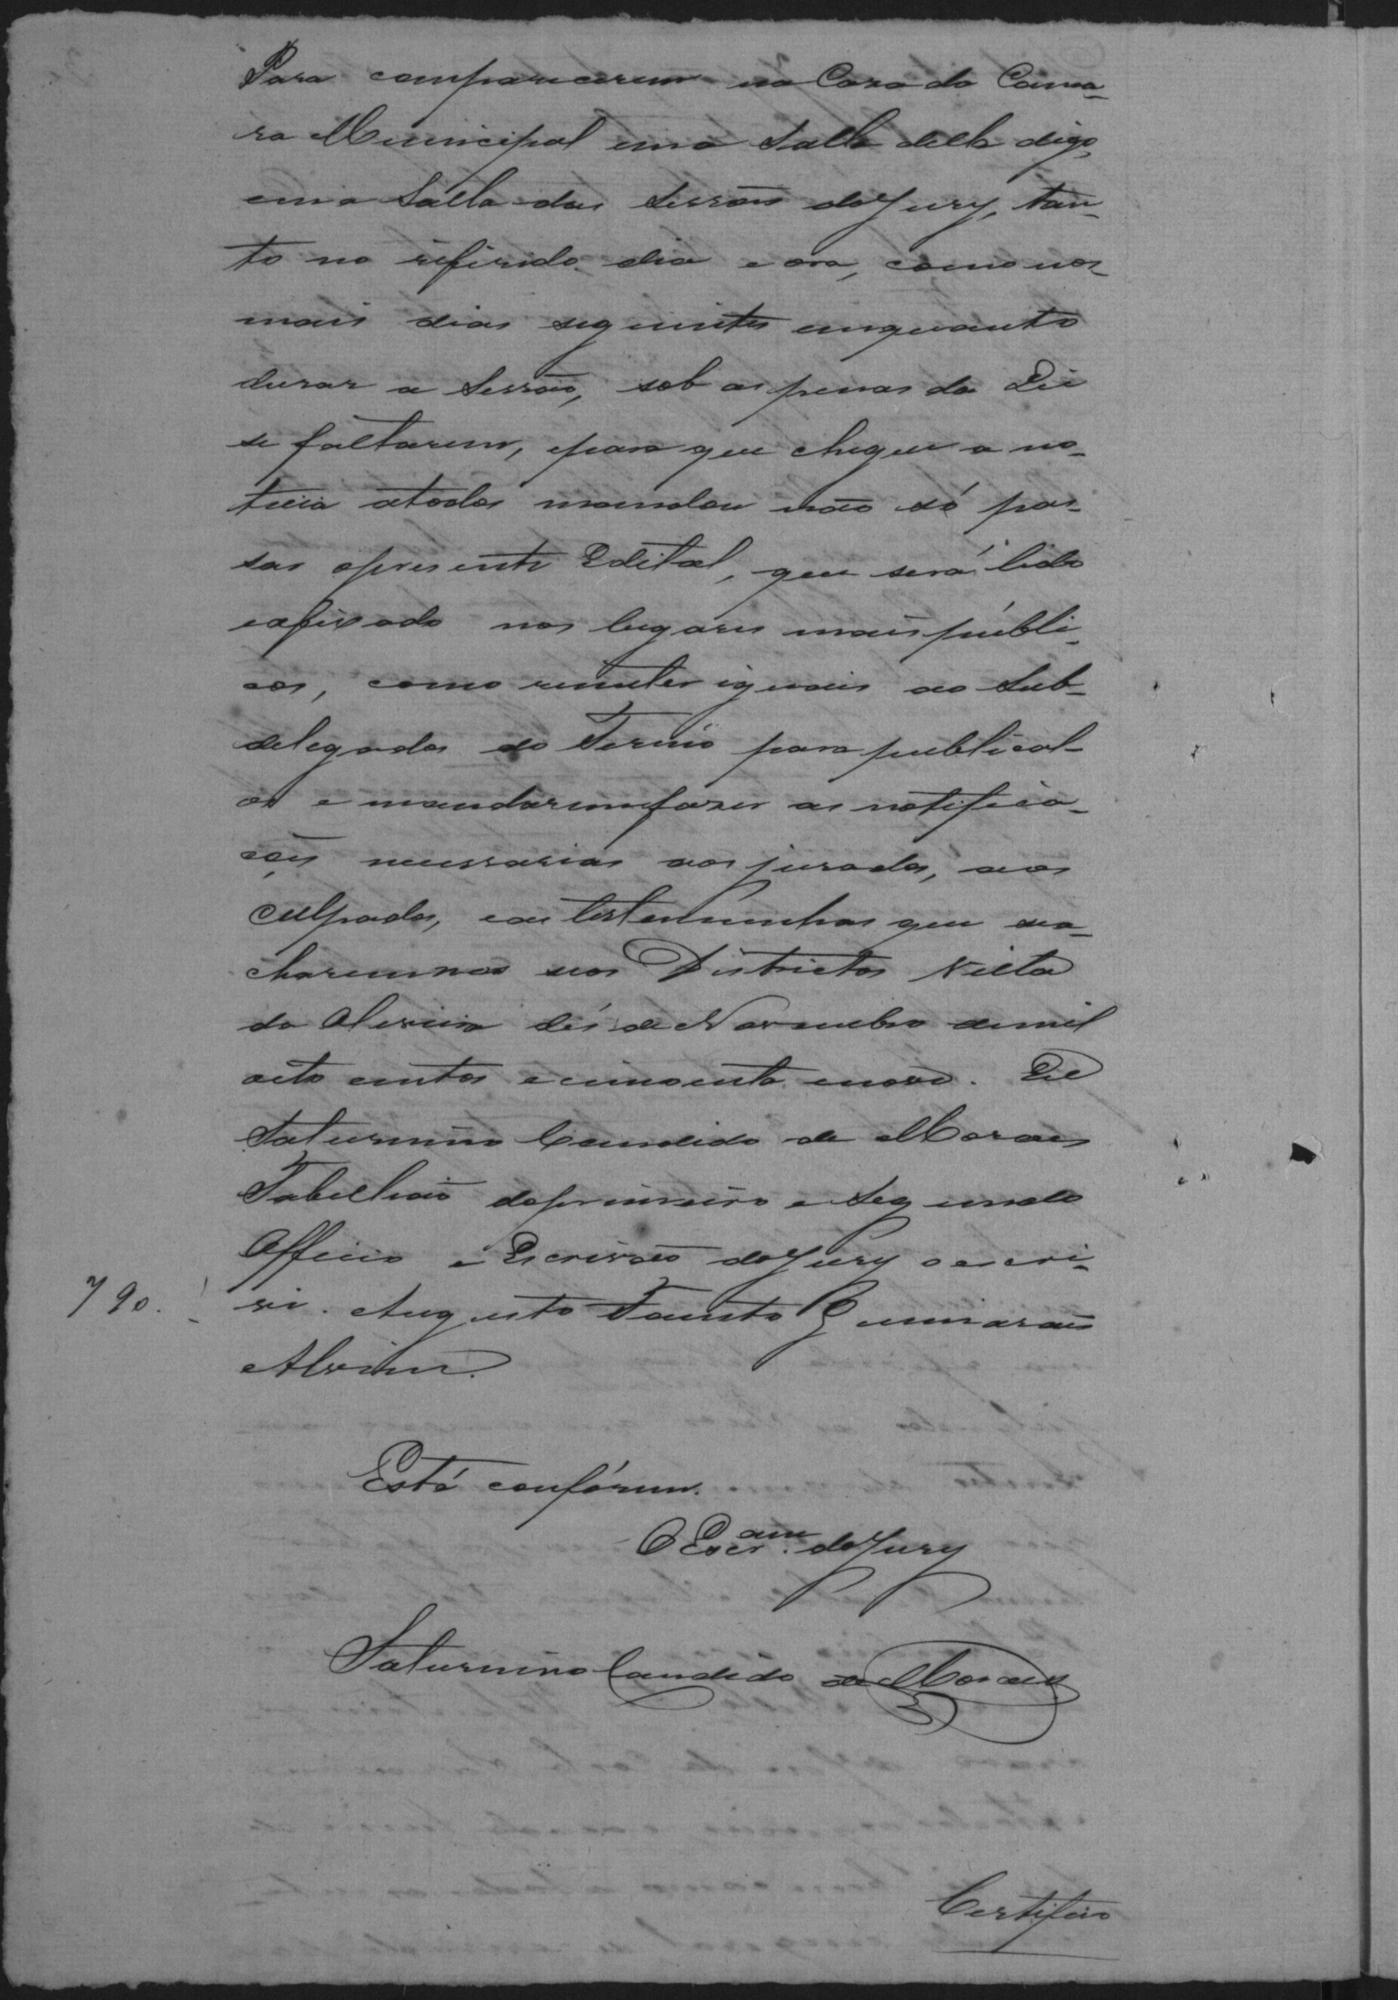 Para comparecerem na Casa da Cama-
ra Municipal em a Salla della digo,
em a Salla das Sessões do Jury, tan-
to no referido dia e ora, como nos
mais dias seguintes emquanto
durar a Sessão, sob as penas da Lei
se faltarem, e para que chegue a no-
ticia atodos mandou não só pas-
sar opresente Edital, que será lido
eafixado nos lugares mais públi-
cos, como remeter iguais ao Sub-
delegados do Termo para publical-
os e mandarem fazer as notifica-
ções necessarias aos jurados, aos
Culpados, e as testemunhas que sea-
charem nos seos Districtos Villa
da Oliveira dés de Novembro demil
oito centos e cincoenta enove. Eu
Saturnino Candido de Moraes
Tabellião doprimeiro e Segundo
Officio e Escrivão do Jury o escri-
790. vi. Augusto Fausto Guimarães
Alvim.
Está confórme.
O Escr.am do Jury
Saturnino Candido de Moraes
Certifico